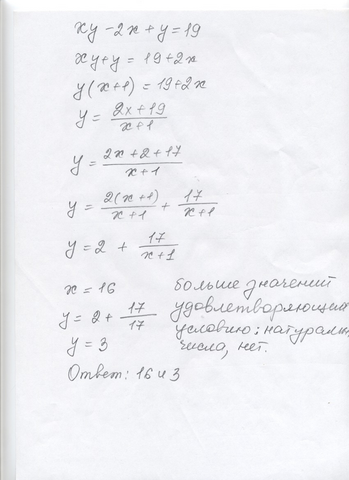 xy - 2x + y = 19
xy + y = 19 + 2x
y(x+1) = 19 + 2x
y = \frac{2x+19}{x+1}
y = \frac{2x+2+17}{x+1}
y = \frac{2(x+1)}{x+1} + \frac{17}{x+1}
y = 2 + \frac{17}{x+1}
x = 16
y = 2 + \frac{17}{17}
y = 3
больше значений
удовлетворяющих
условию: натуральн
числа, нет.
Ответ: 16 и 3